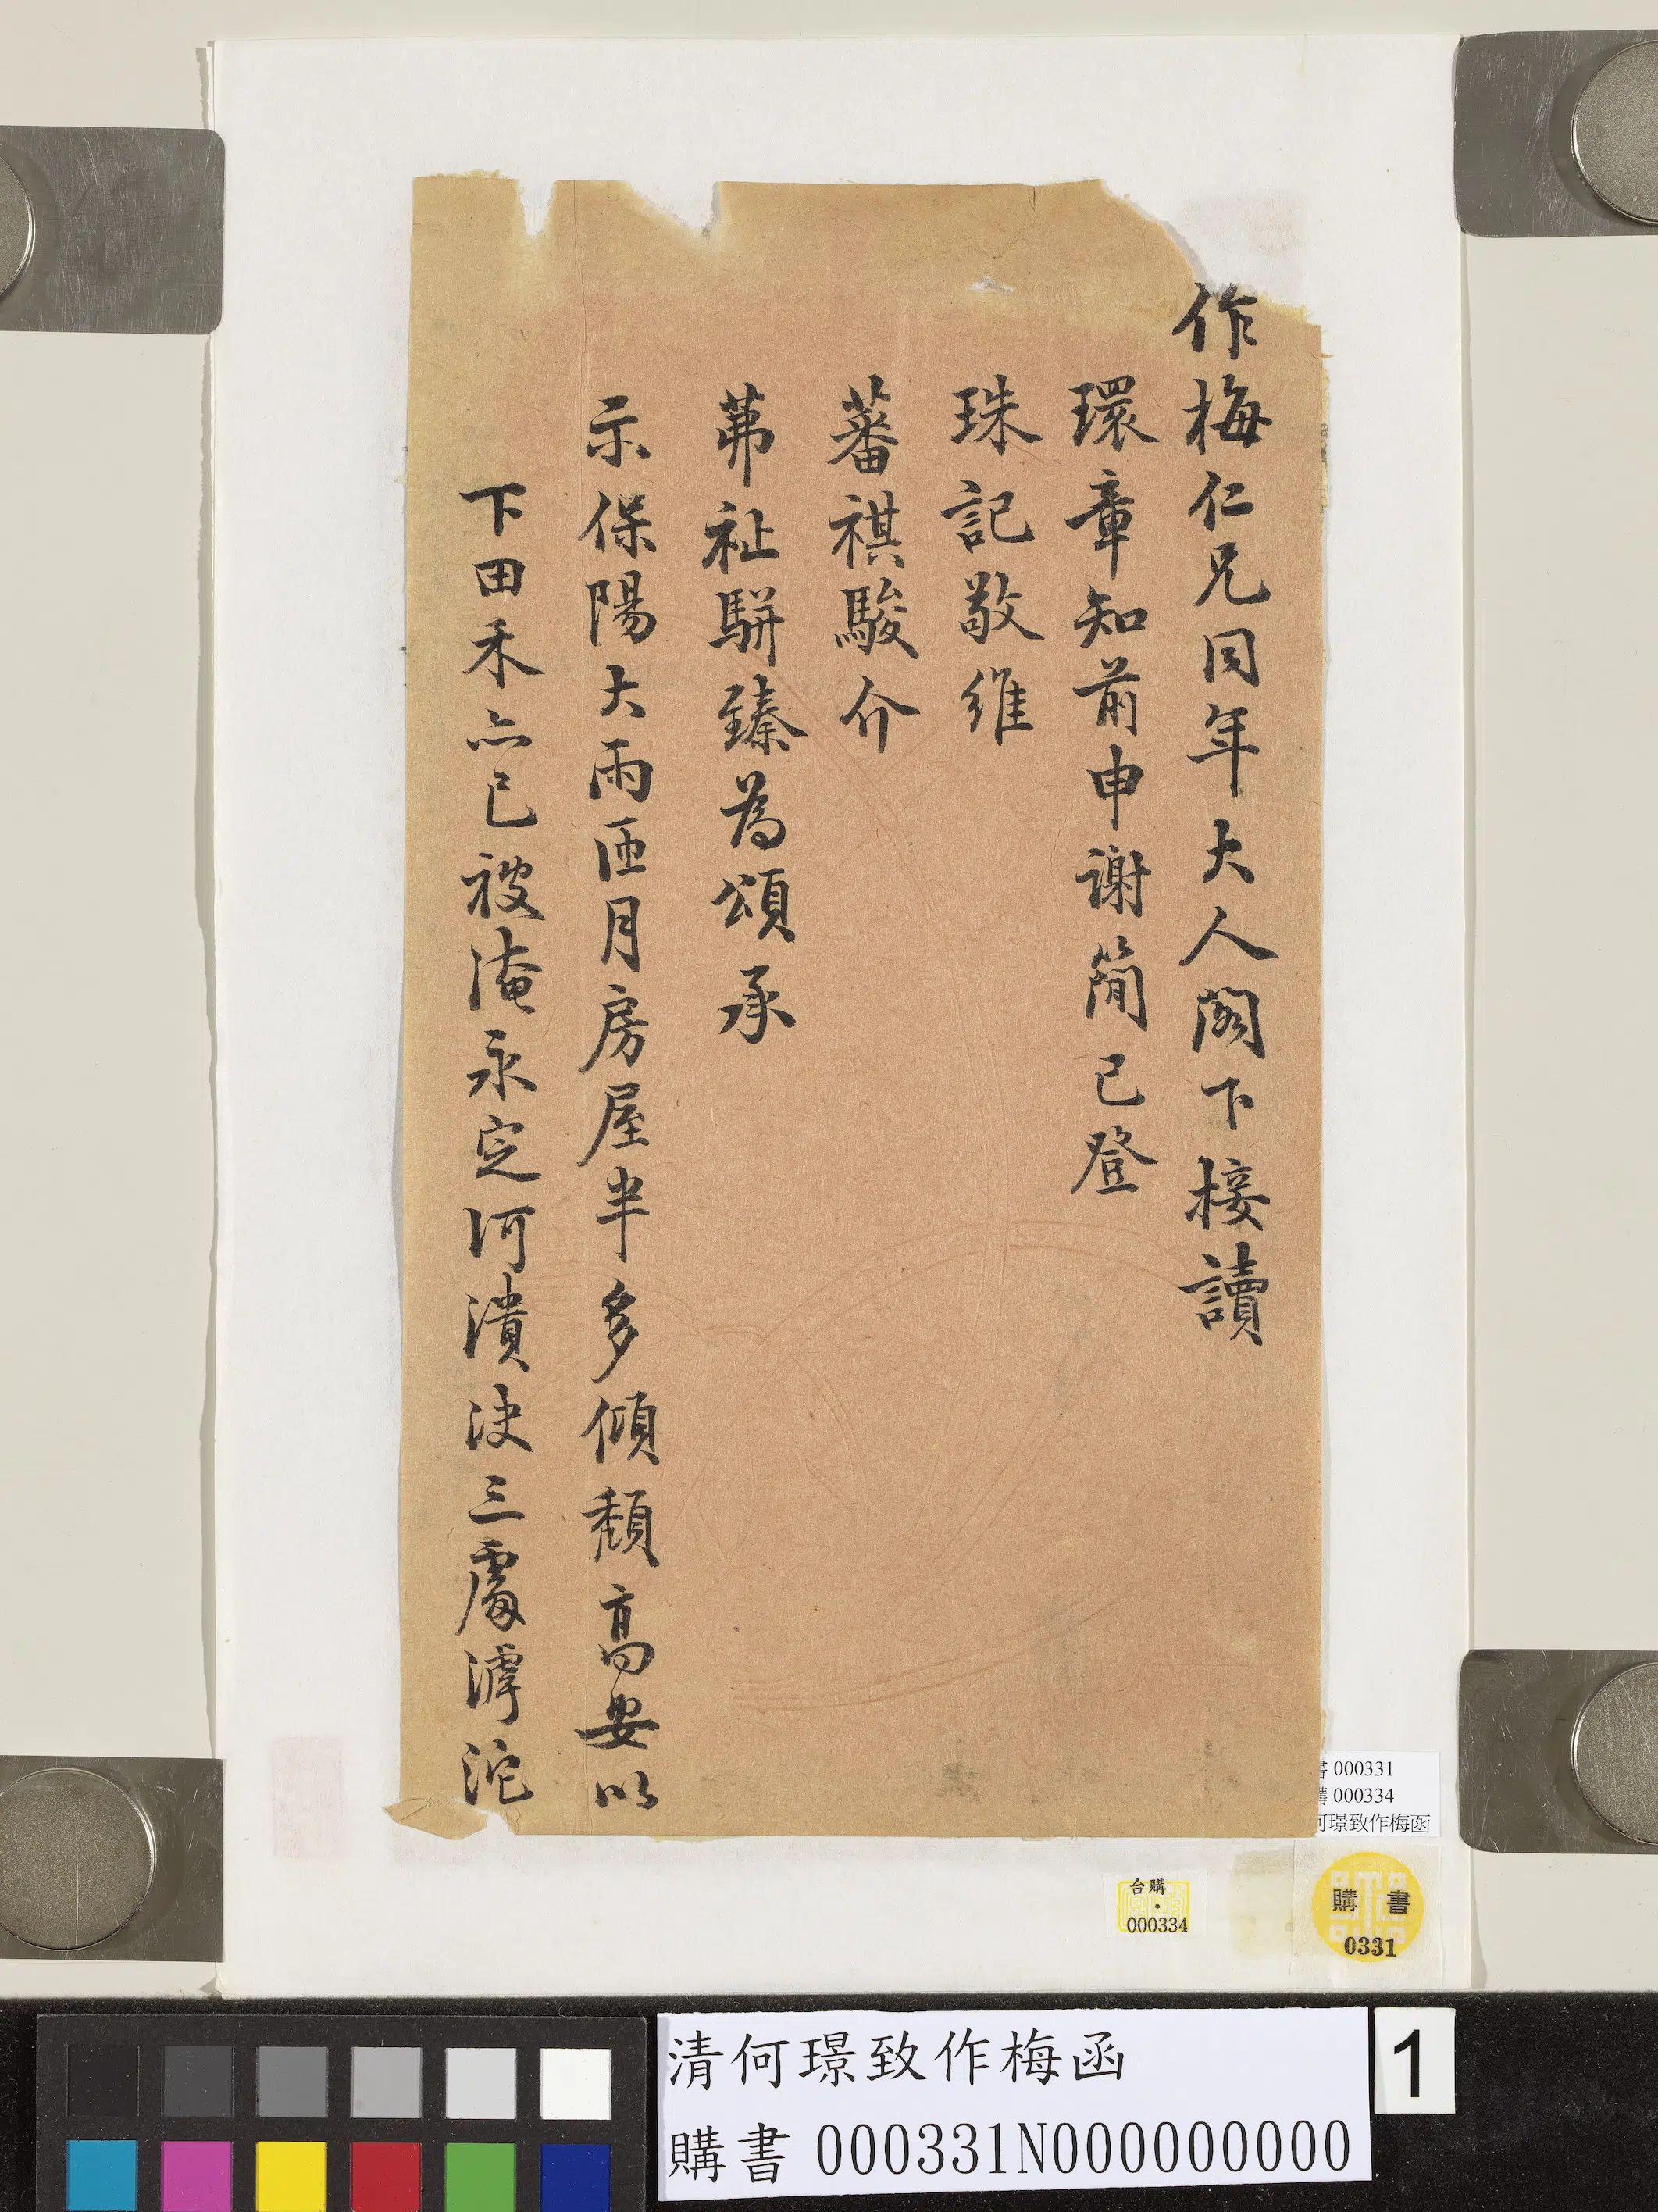 作梅仁兄同年大人閣下接讀
環章知前申謝簡已登
珠記敬維
蕃祺駿介
茀祉駢臻為頌承
示保陽大雨匝月房屋半多傾頹高安以
下田禾亦已被淹永定河潰決三處滹沱
書 000331
購 000334
何璟致作梅函
台購
000334
購書
0331
清何璟致作梅函
購書 000331N000000000
1